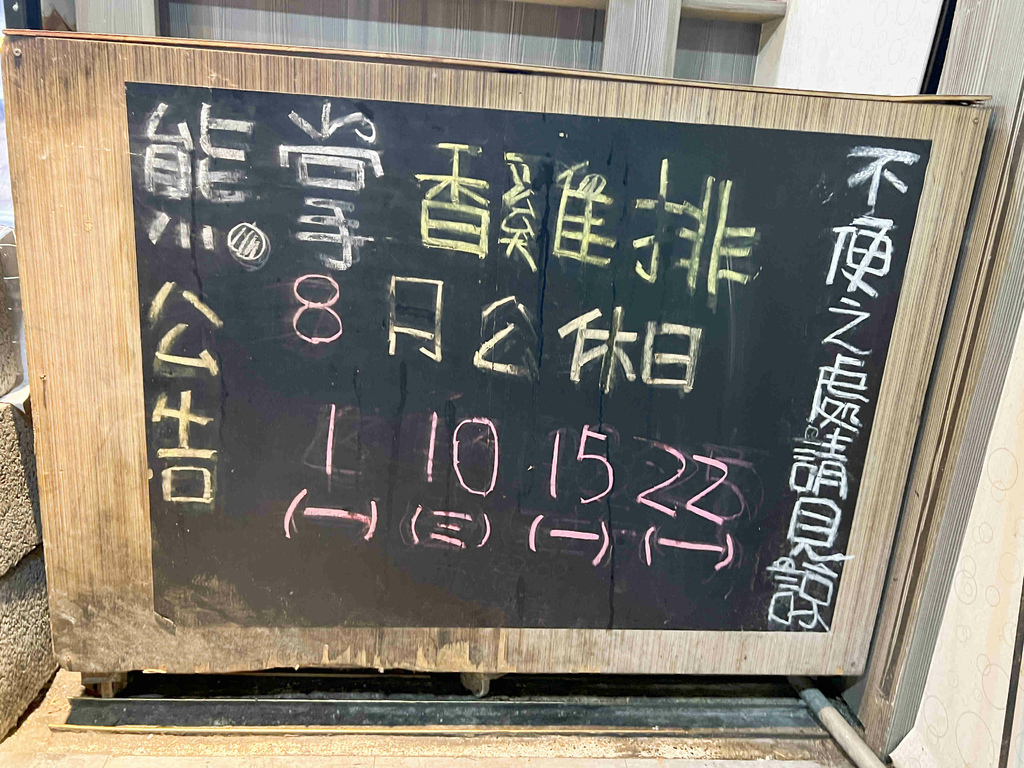 熊掌香雞排
公告
8月公休日
1 10 15 22
(一) (三) (一) (一)
不便之處請見諒